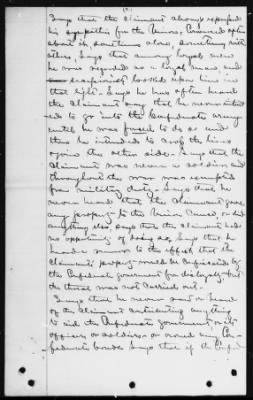 (2)
Says that the claimant always expressed
his sympathies for the Union, conversed often
about it sometimes alone, sometimes with
others. Says that among loyal men
he was regarded as a loyal man, and
looked upon him in
that light. Says he has often heard
the claimant say that he never intend
ed to go into the Confederate army
until he was forced to do so and
then he intended to
join the other side. Says that the
claimant was never a soldier and
throughout the war was exempted
from military duty. Says that he
never heard that the claimant gave
any property to the Union cause, or did
anything else, says that the claimant had
no opportunity of doing so, Says that he
heard a rumor to the effect that the
claimant's property would be confiscated by
the Confederate government for disloyalty but
the threat was not carried out.
Says that he never saw or heard
of the claimant contributing anything
to aid the Confederate government or its
officers or soldiers or owned any Con-
federate bonds. Says that if the Confed